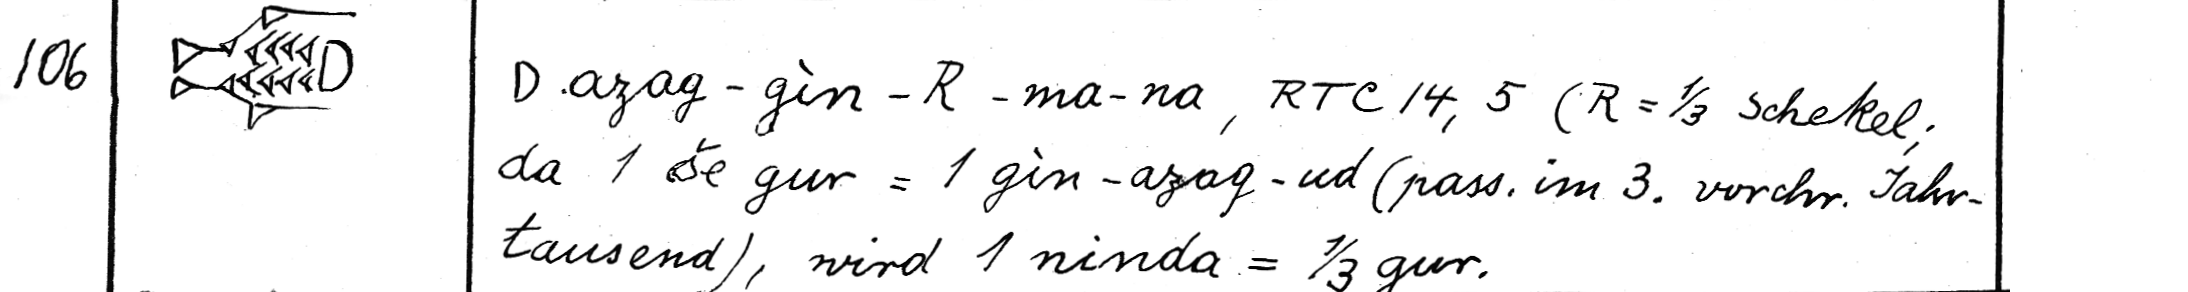 106
D. azag-gìn-R-ma-na, RTC 14, 5 (R = 1/3 Schekel;
da 1 še gur = 1 gìn-azag-ud (pass. im 3. vorchr. Jahr-
tausend), wird 1 ninda = 1/3 gur.